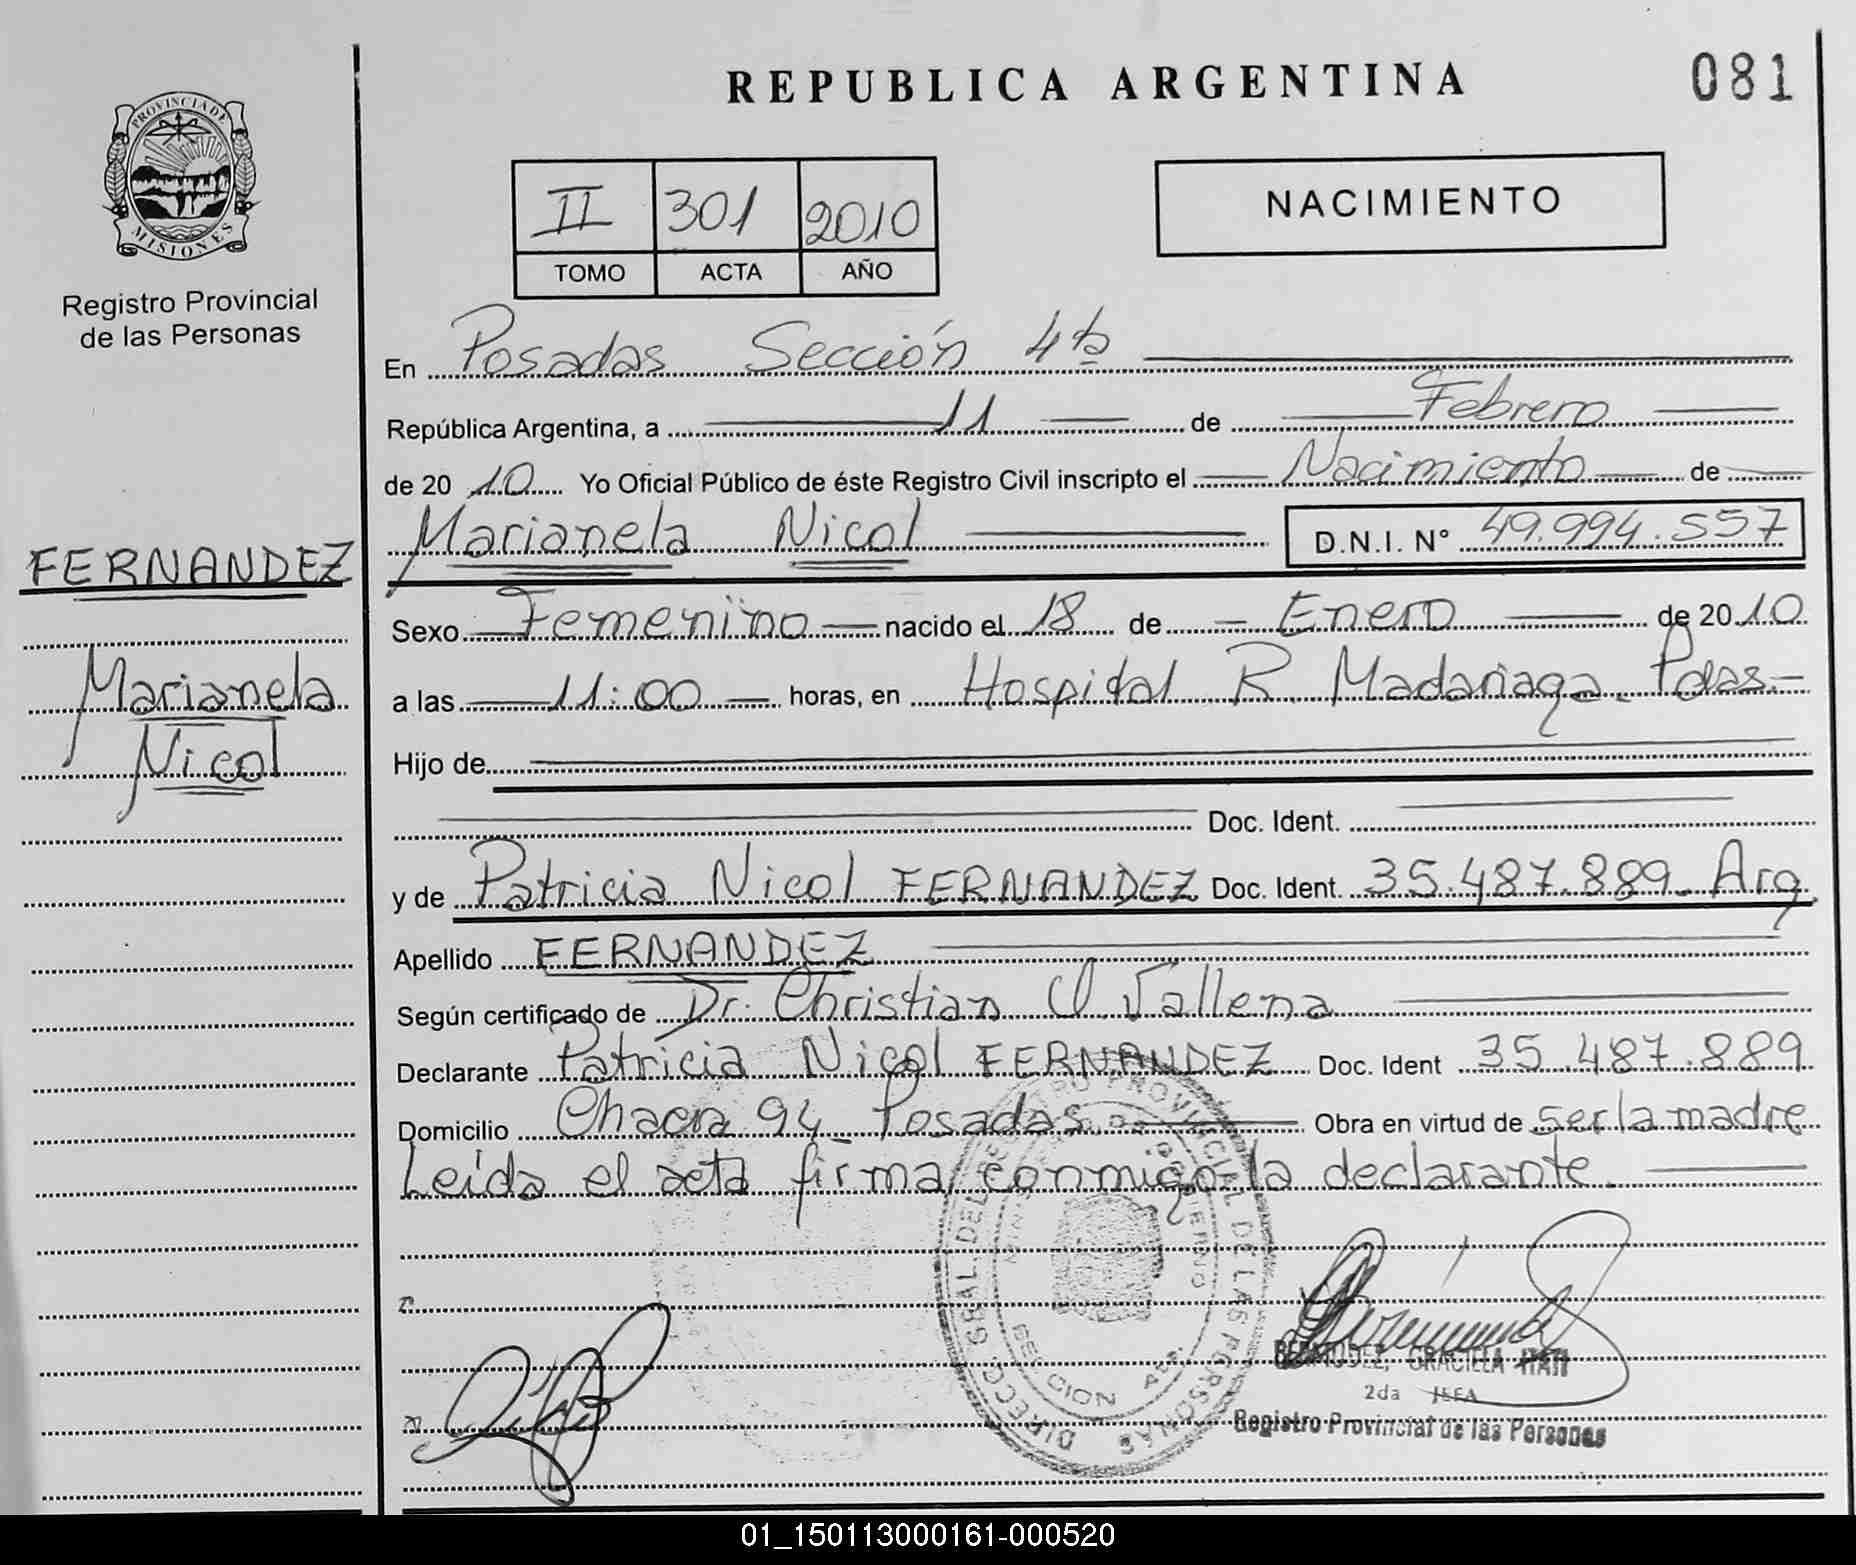 REPUBLICA ARGENTINA
081
PROVINCIA DE
MISIONES
Registro Provincial
de las Personas
II 301 2010
TOMO ACTA AÑO
NACIMIENTO
FERNANDEZ
Marianela
Nicol
En Posadas Sección 4ta
República Argentina, a 11 de Febrero
de 2010 Yo Oficial Público de éste Registro Civil inscripto el Nacimiento de
Marianela Nicol D.N.I. N° 49.994.557
Sexo Femenino nacido el 18 de Enero de 2010
a las 11:00 horas, en Hospital R. Madariaga. Pdas.-
Hijo de
Doc. Ident.
y de Patricia Nicol FERNANDEZ Doc. Ident. 35.487.889- Arg.
Apellido FERNANDEZ
Según certificado de Dr. Christian Vallena
Declarante Patricia Nicol FERNANDEZ Doc. Ident 35.487.889
Domicilio Chacra 94 Posadas Obra en virtud de ser la madre
Leida el acta firma conmigo la declarante.
DIRECC. GRAL. DEL REGISTRO PROVINCIAL DE LAS PERSONAS
SECCION
BERMUDEZ, GRACIELA ITATI
2da JEFA
Registro Provincial de las Personas
01_150113000161-000520